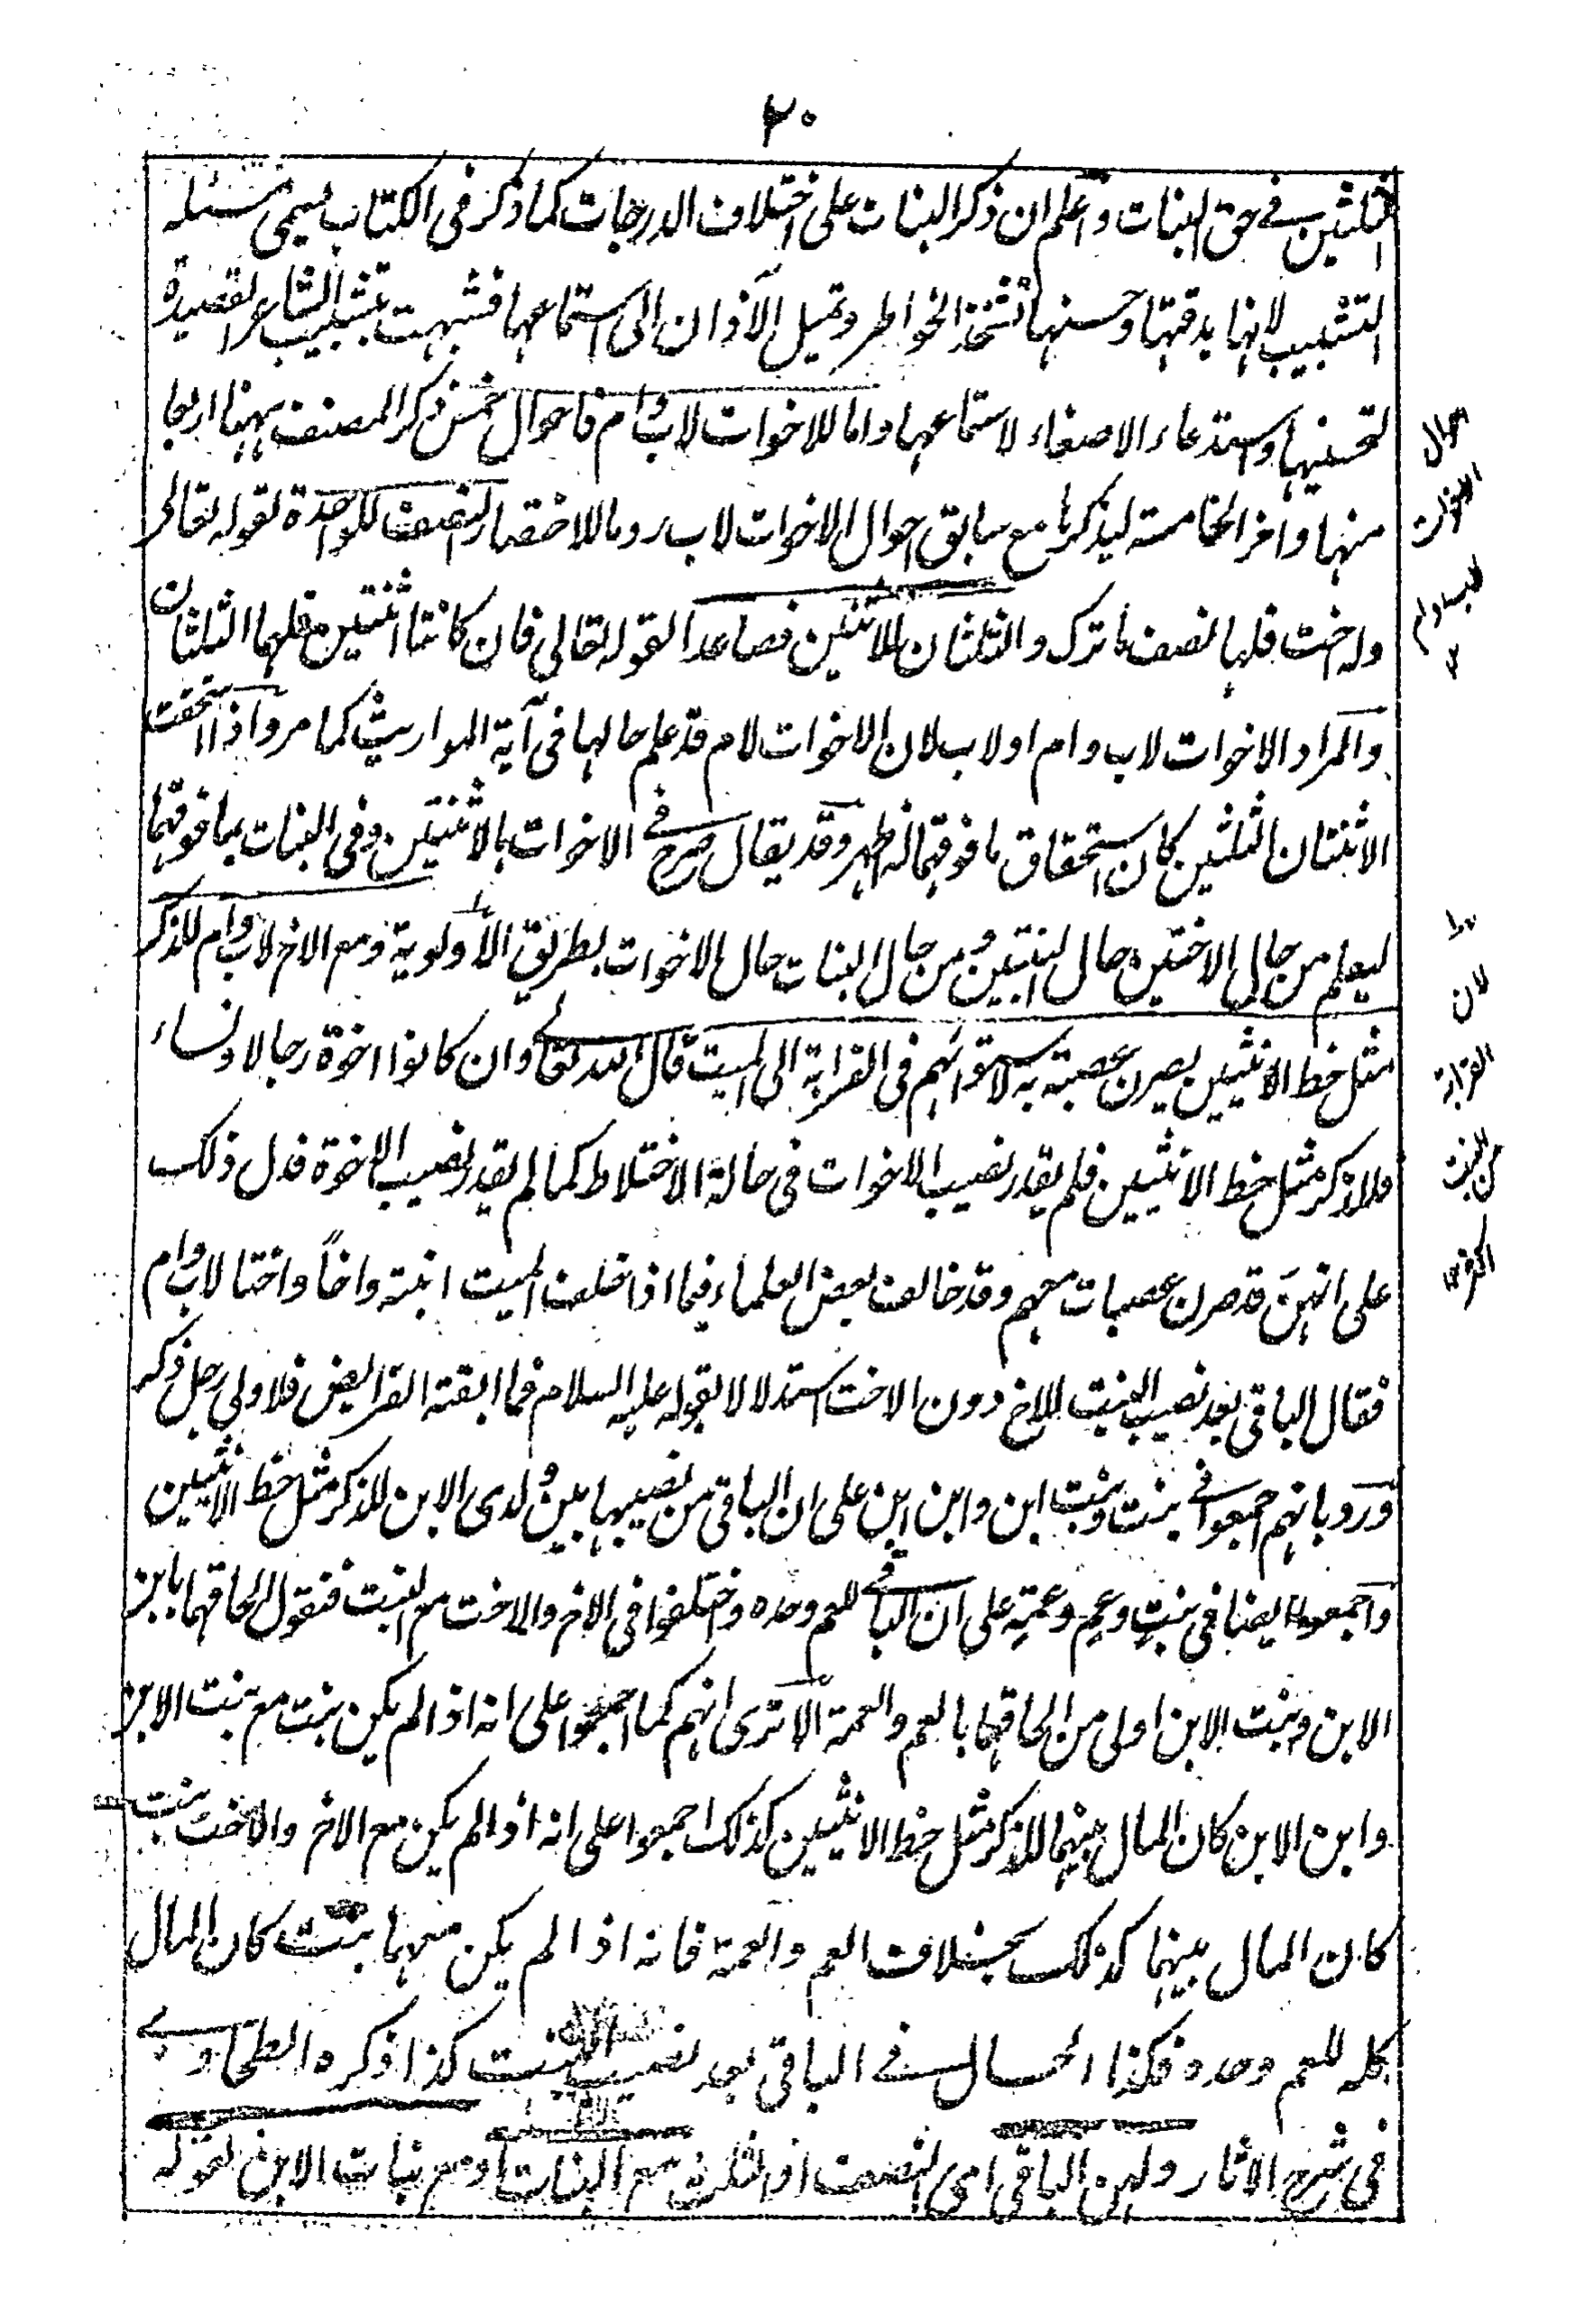 ٢٠
الثلثين في حق البنات واعلم ان ذكر البنات على اختلاف الدرجات كما ذكر في الكتاب يسمى مسئلة
التشبيب لانها بدقتها وحسنها تشحذ الخواطر وتميل الآذان الى استماعها فشبهت بتشبيب الشاعر القصيدة
لتحسينها واستدعاء الاصغاء لاستماعها واما للاخوات لاب وام فاحوال خمس ذكر المصنف ههنا اربعا
منها واخر الخامسة ليذكرها مع سابق احوال الاخوات لاب روما للاختصار النصف للواحدة لقوله تعالى
وله اخت فلها نصف ما ترك والثلثان للاثنتين فصاعدا لقوله تعالى فان كانتا اثنتين فلهما الثلثان
والمراد الاخوات لاب وام او لاب لان الاخوات لام قد علم حالها في آية المواريث كما مر واذا استحقت
الاثنتان الثلثين كان استحقاق ما فوقهما له اظهر وقد يقال صرح في الاخوات بالاثنتين وفي البنات بما فوقهما
ليعلم من حال الاختين حال البنتين ومن حال البنات حال الاخوات بطريق الاولوية ومع الاخ لاب وام للذكر
مثل حظ الانثيين يصرن عصبة به لاستوائهم في القرابة الى الميت قال الله تعالى وان كانوا اخوة رجالا ونساء
فللذكر مثل حظ الانثيين فلم يقدر نصيب الاخوات في حالة الاختلاط كما لم يقدر نصيب الاخوة فدل ذلك
على انهن قد صرن عصبات معهم وقد خالف بعض العلماء فيما اذا خلف الميت ابنة واخاً واختا لاب وام
فقال الباقي بعد نصيب البنت للاخ دون الاخت استدلالا بقوله عليه السلام فما ابقته الفرائض فلاولى رجل ذكر
ورد بانهم اجمعوا في بنت وبنت ابن وابن ابن على ان الباقي من نصيبها بين ولدى الابن للذكر مثل حظ الانثيين
واجمعوا ايضا في بنت وعم وعمة على ان الباقي للعم وحده واختلفوا في الاخ والاخت مع البنت فنقول الحاقهما بابن
الابن وبنت الابن اولى من الحاقهما بالعم والعمة الا ترى انهم كما اجمعوا على انه اذا لم يكن بنت مع بنت الابن
وابن الابن كان المال بينهما للذكر مثل حظ الانثيين كذلك اجمعوا على انه اذا لم يكن مع الاخ والاخت بنت
كان المال بينهما كذلك بخلاف العم والعمة فانه اذا لم يكن معهما بنت كان المال
كله للعم وحده فكذا الحال في الباقي بعد نصيب البنت كذا ذكره الطحاوي
في شرح الاثار ولهن الباقي اى النصف او الثلث مع البنات او مع بنات الابن لقوله
احوال
الاخوات
لاب وام
لان
القرابة
من البنت